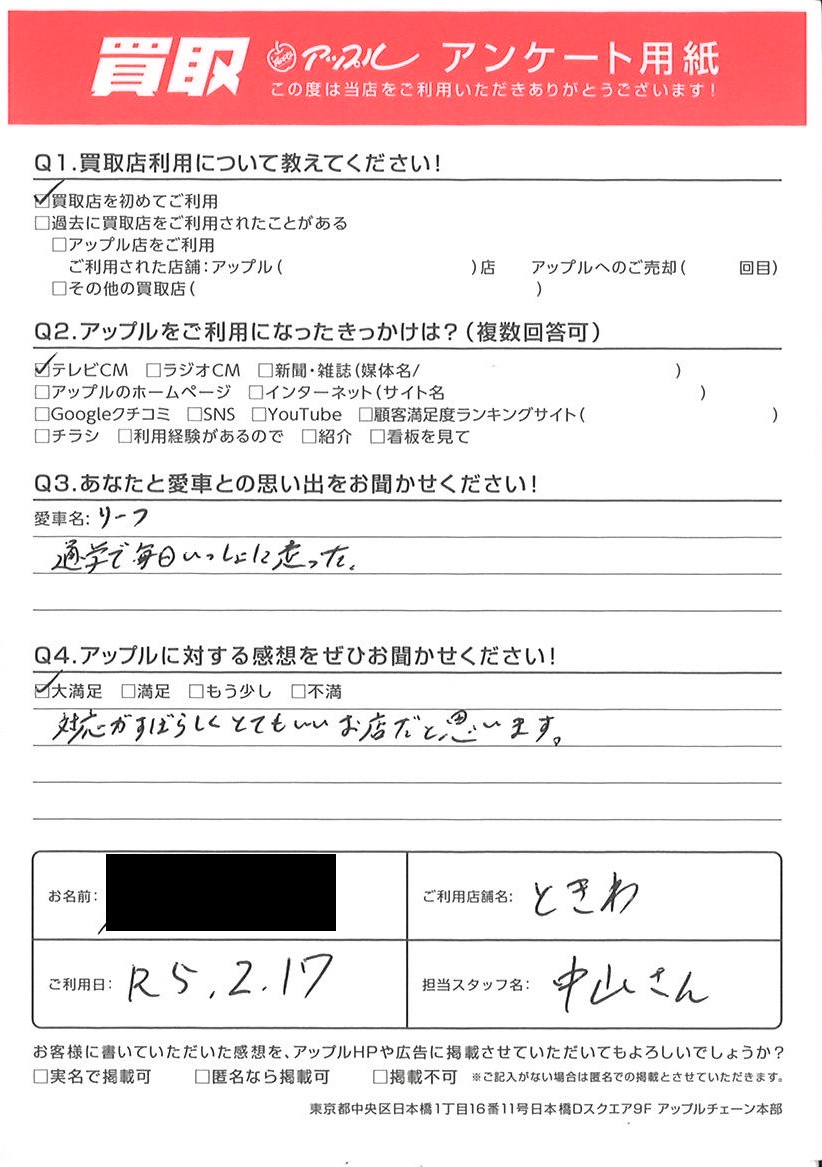 買取 アップル アンケート用紙
この度は当店をご利用いただきありがとうございます!
Q1.買取店利用について教えてください!
☑買取店を初めてご利用
□過去に買取店をご利用されたことがある
□アップル店をご利用
ご利用された店舗:アップル( )店 アップルへのご売却( 回目)
□その他の買取店( )
Q2.アップルをご利用になったきっかけは?(複数回答可)
☑テレビCM □ラジオCM □新聞・雑誌(媒体名/ )
□アップルのホームページ □インターネット(サイト名 )
□Googleクチコミ □SNS □YouTube □顧客満足度ランキングサイト( )
□チラシ □利用経験があるので □紹介 □看板を見て
Q3.あなたと愛車との思い出をお聞かせください!
愛車名: リーフ
通学で毎日いっしょに走った。
Q4.アップルに対する感想をぜひお聞かせください!
☑大満足 □満足 □もう少し □不満
対応がすばらしくとてもいいお店だと思います。
お名前:
ご利用店舗名: ときわ
ご利用日: R5.2.17
担当スタッフ名: 中山さん
お客様に書いていただいた感想を、アップルHPや広告に掲載させていただいてもよろしいでしょうか?
□実名で掲載可 □匿名なら掲載可 □掲載不可 ※ご記入がない場合は匿名での掲載とさせていただきます。
東京都中央区日本橋1丁目16番11号日本橋Dスクエア9F アップルチェーン本部